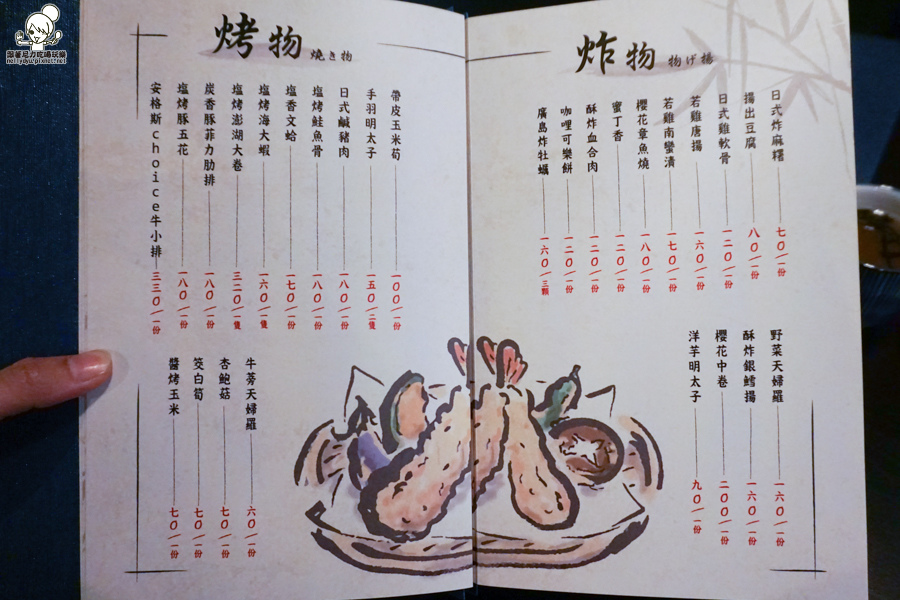 跟著尼力吃喝玩樂
nellydyu.pixnet.net
炸物 物げ揚
日式炸麻糬 七〇/一份
揚出豆腐 八〇/一份
日式雞軟骨 一二〇/一份
若雞唐揚 一六〇/一份
若雞南蠻漬 一七〇/一份
櫻花章魚燒 一八〇/一份
蜜丁香 一二〇/一份
酥炸血合肉 一二〇/一份
咖哩可樂餅 一二〇/一份
廣島炸牡蠣 一六〇/三顆
野菜天婦羅 一六〇/一份
酥炸銀鱈揚 一六〇/一份
櫻花中卷 二〇〇/一份
洋芋明太子 九〇/一份
烤物 燒き物
帶皮玉米筍 一〇〇/一份
手羽明太子 一五〇/二隻
日式鹹豬肉 一八〇/一份
塩烤鮭魚骨 一八〇/一份
塩香文蛤 一七〇/一份
塩烤海大蝦 一六〇/一隻
塩烤澎湖大卷 三二〇/一隻
炭香豚菲力肋排 一八〇/一份
塩烤豚五花 一八〇/一份
安格斯choice牛小排 三三〇/一份
牛蒡天婦羅 六〇/一份
杏鮑菇 七〇/一份
筊白筍 七〇/一份
醬烤玉米 七〇/一份